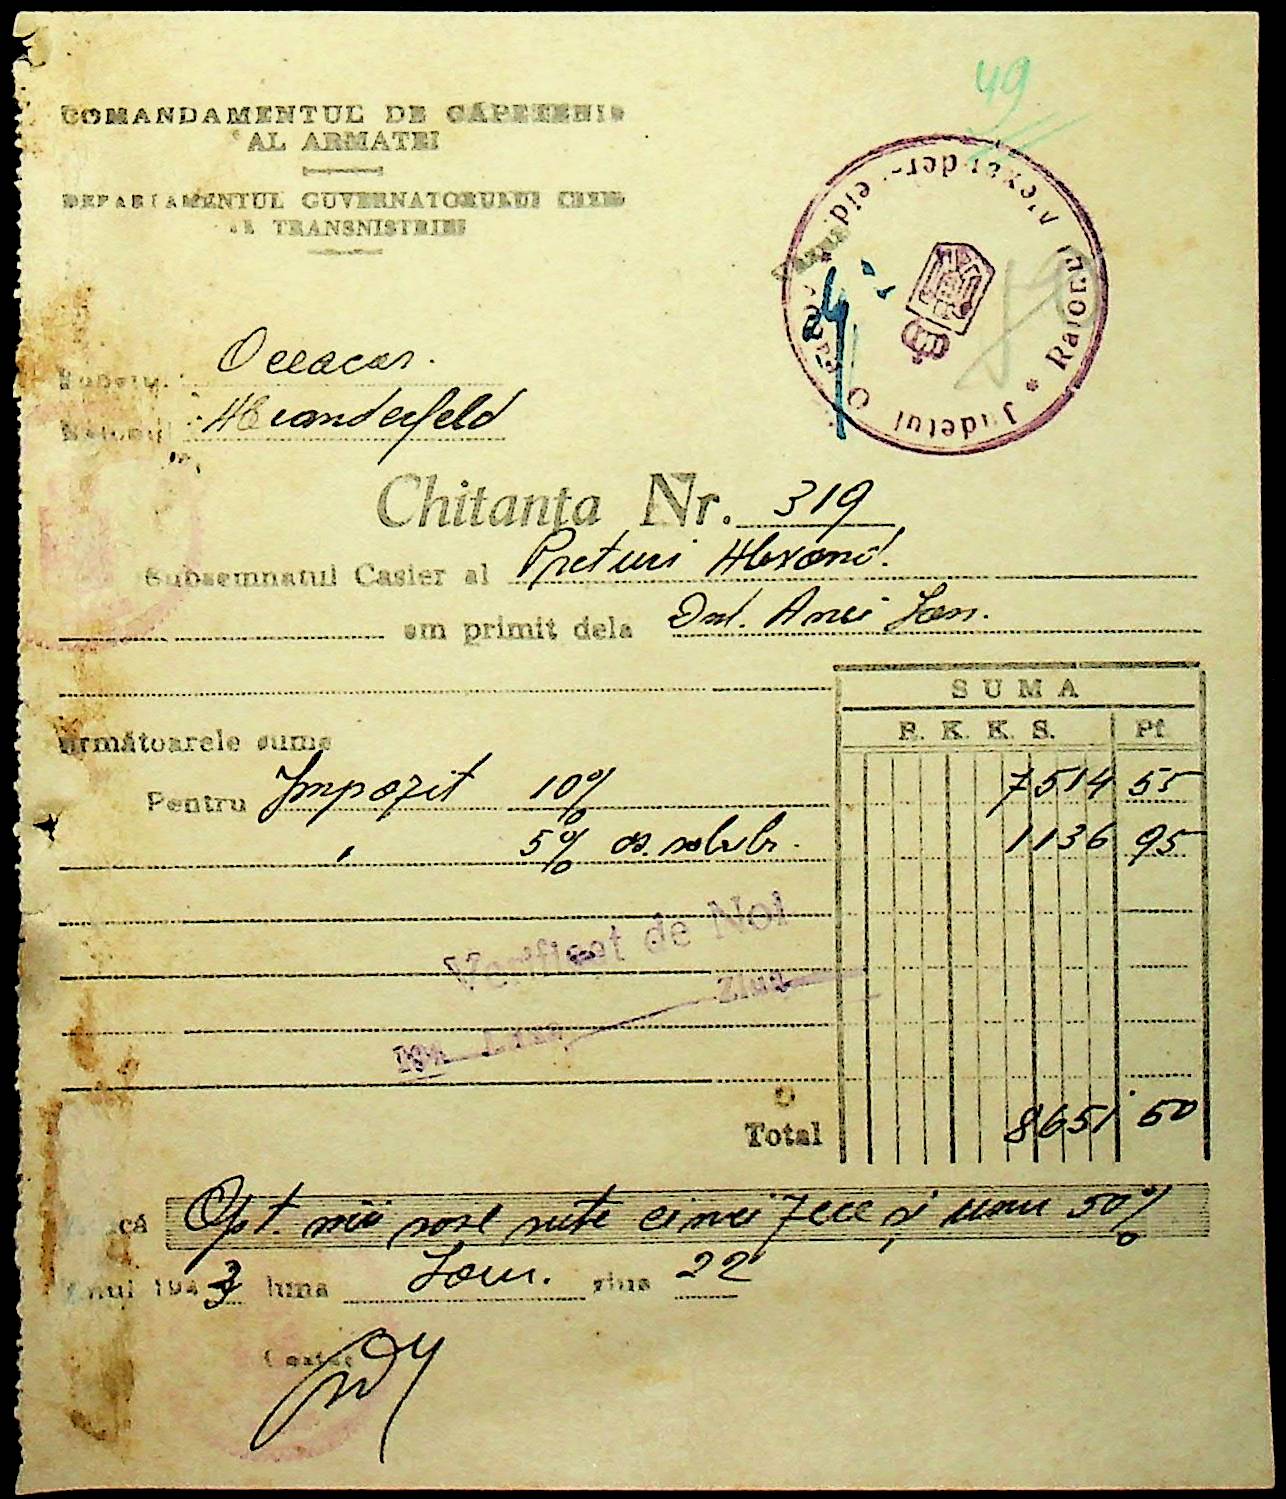 49
COMANDAMENTUL DE CĂPETENIE
AL ARMATEI
DEPARTAMENTUL GUVERNATORULUI CIVIL
AL TRANSNISTRIEI
Judetul O * Raionul Alexander-feld
Județu. Oceacov.
Raionul Alexanderfeld
Chitanța Nr. 319
Subsemnatul Casier al Preturi Alexand.
am primit dela Dnl. Anei Ion.
SUMA
următoarele sume
R. K. K. S. Pf
Pentru Impozit 10% 7514 55
" 5% 1136 95
Verificat de Noi
Luna Ziua
Total 8651 50
Adică Opt. mii șase sute cinci zece și unu 50%
Anul 1943 luna Ian. ziua 22
Casier